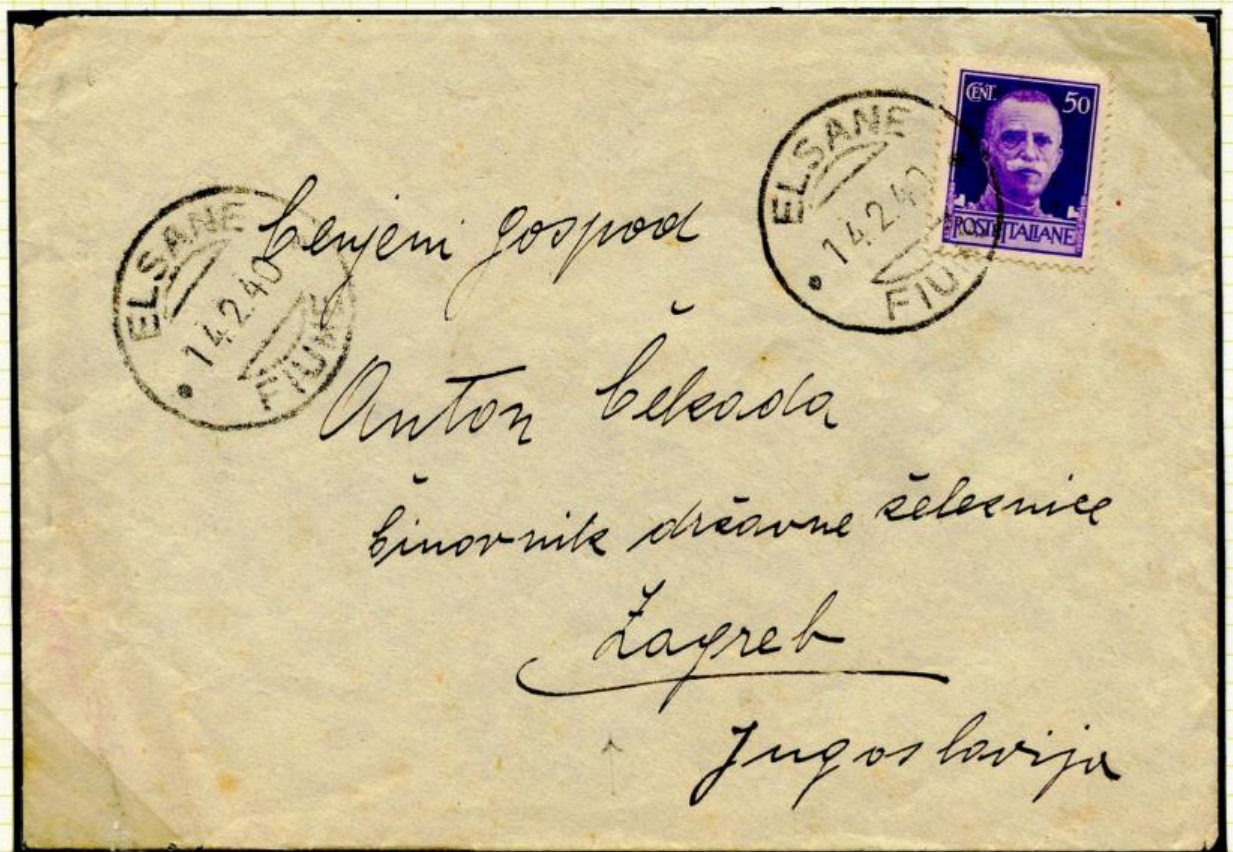 ELSANE
14.2.40
FIUME
ELSANE
14.2.40
FIU
CENT. 50
POSTE ITALIANE
Cenjeni gospod
Anton Čekada
činovnik državne železnice
Zagreb
Jugoslavija